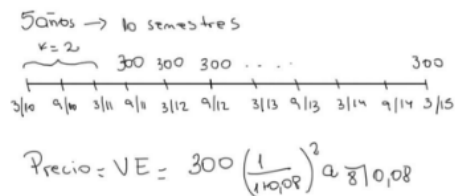 5años → 10 semestres
k=2
300 300 300 ..... 300
3/10 9/10 3/11 9/11 3/12 9/12 3/13 9/13 3/14 9/14 3/15
Precio = VE = 300 (1/1+0,08)² a 8̅| 0,08